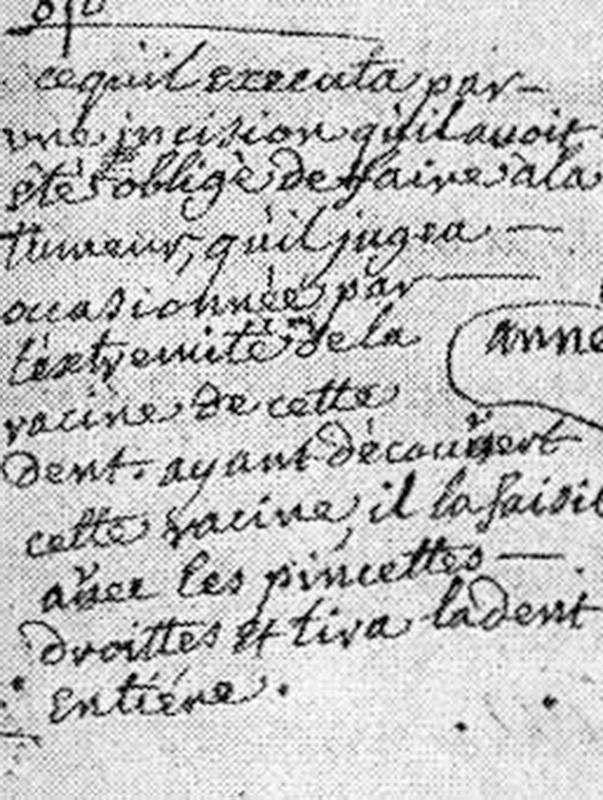 cequil executa par
une jncision quil avoit
été obligé de faire a la
tumeur, quil jugea
occasionnée par
l'extremité de la
anne
racine de cette
dent. ayant découvert
cette racine, il la saisit
avec les pincettes
droittes et tira la dent
Entiére.